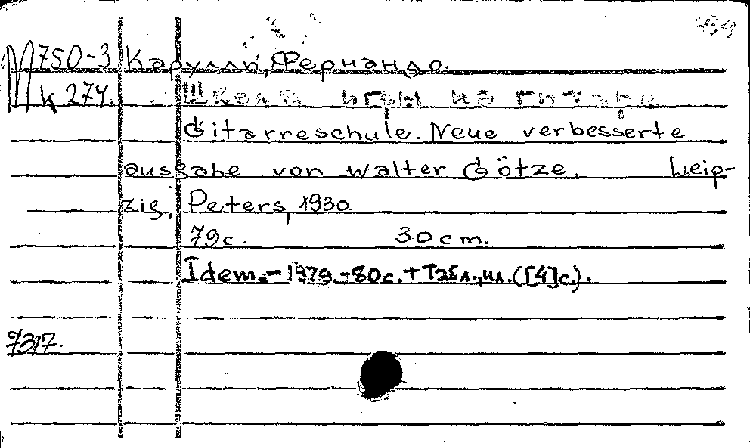 750-3 Карулли, Фернандо.
К 274. Школа игры на гитаре
Gitarreschule. Neue verbesserte
ausgabe von Walter Götze. Leip-
zig, Peters, 1930
79с. 30cm.
Idem. - 1979. - 80с. + Табл., ил. ([4]с.).
7317.